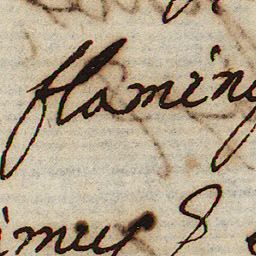 flaming
imus &